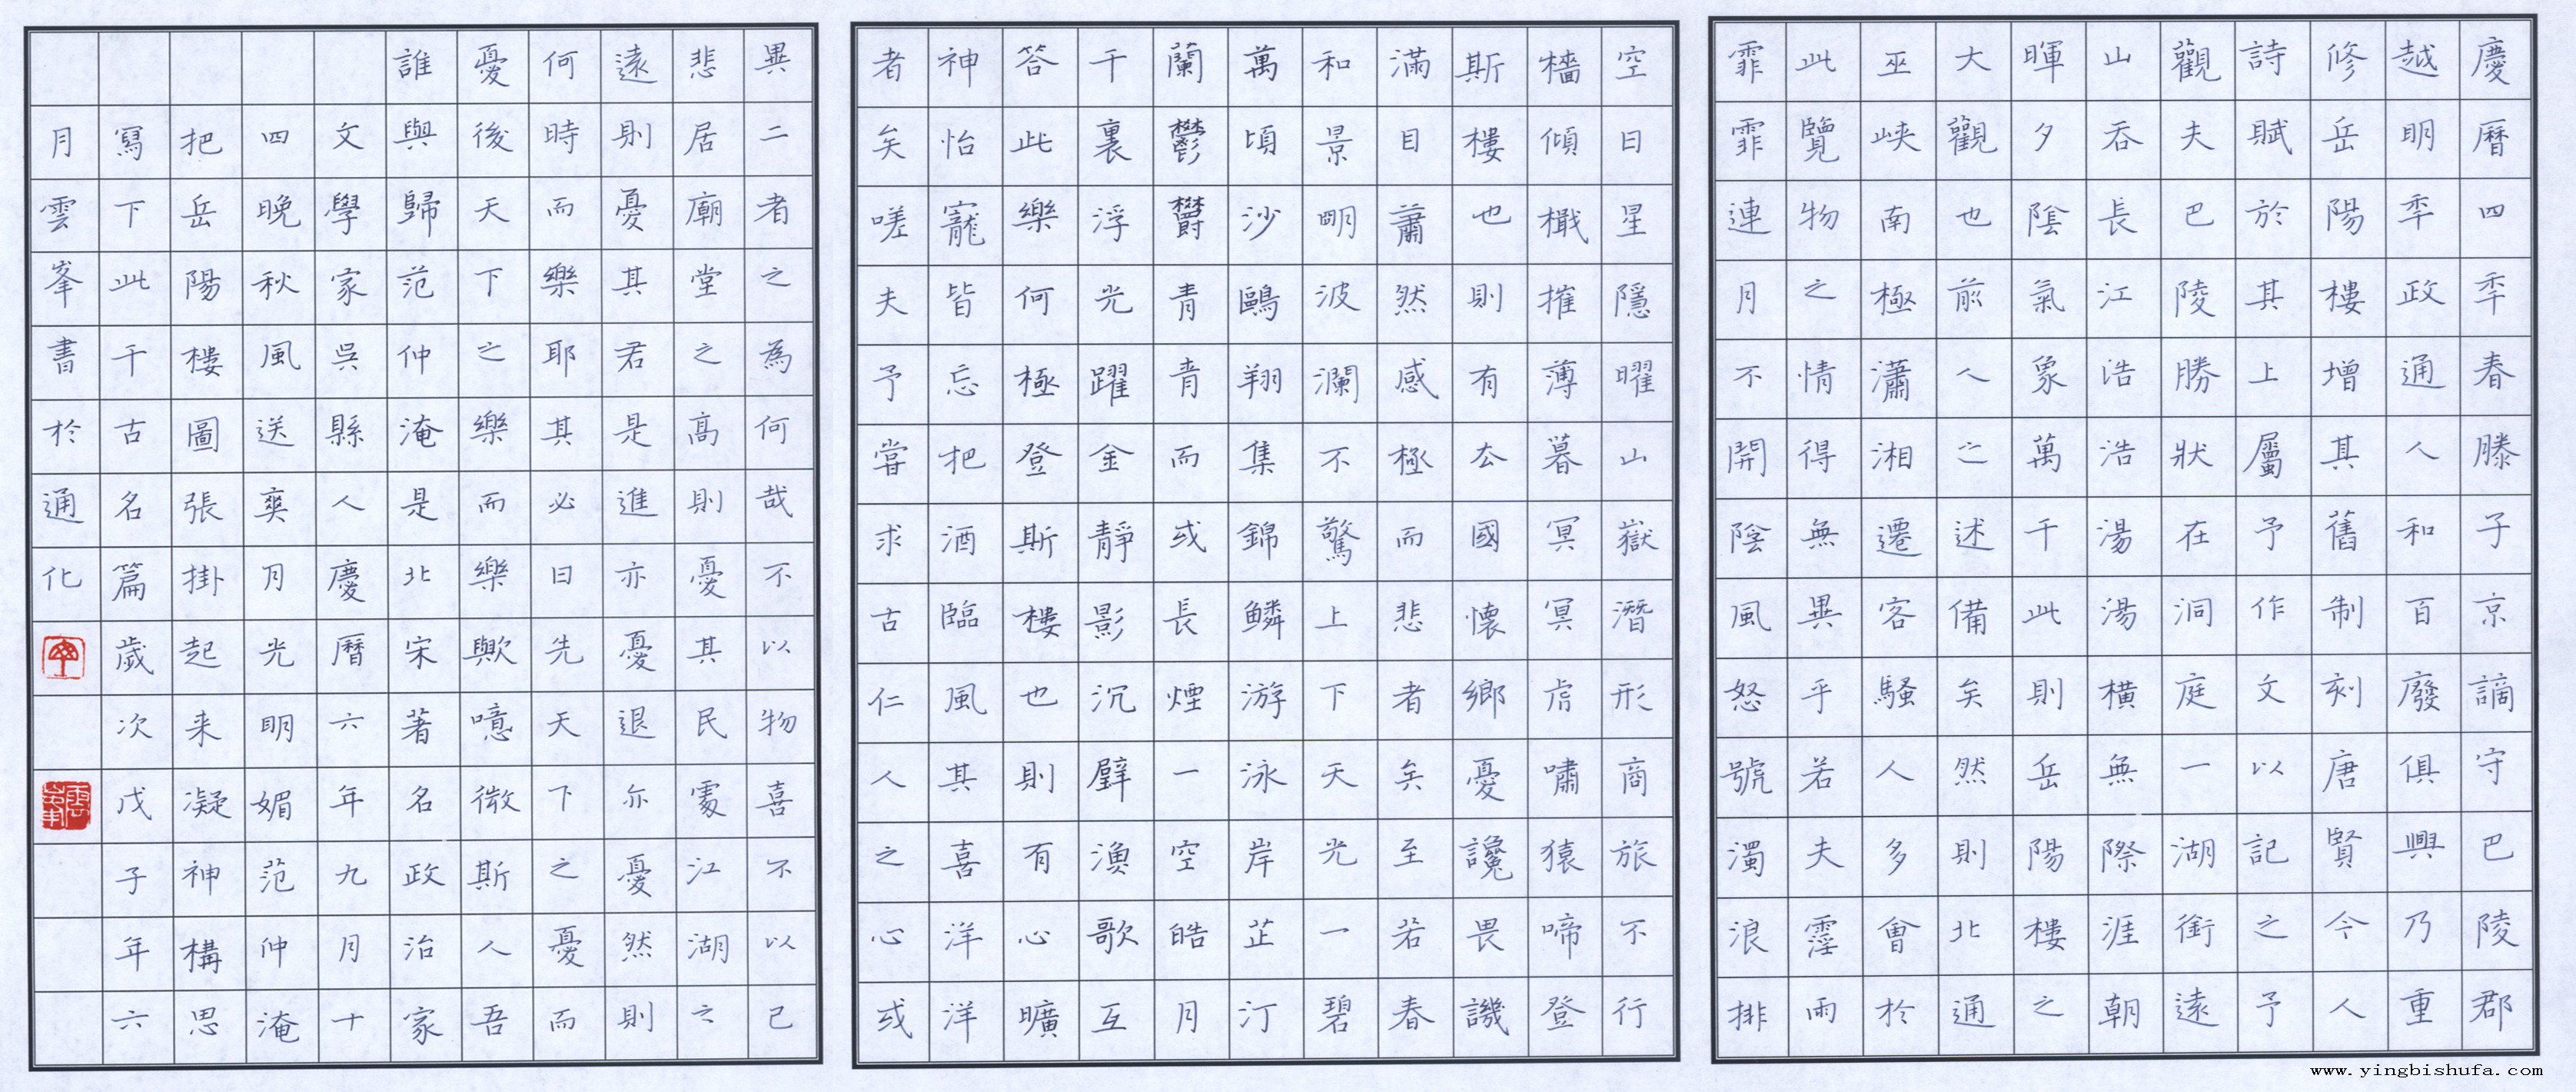 慶曆四秊春滕子京謫守巴陵郡
越明秊政通人和百廢俱興乃重
修岳陽樓增其舊制刻唐賢今人
詩賦於其上屬予作文以記之予
觀夫巴陵勝狀在洞庭一湖銜遠
山吞長江浩浩湯湯橫無際涯朝
暉夕陰氣象萬千此則岳陽樓之
大觀也前人之述備矣然則北通
巫峽南極瀟湘遷客騷人多會於
此覽物之情得無異乎若夫霪雨
霏霏連月不開陰風怒號濁浪排
空日星隱曜山嶽潛形商旅不行
檣傾檝摧薄暮冥冥虎嘯猿啼登
斯樓也則有去國懷鄉憂讒畏譏
滿目蕭然感極而悲者矣至若春
和景明波瀾不驚上下天光一碧
萬頃沙鷗翔集錦鱗游泳岸芷汀
蘭鬱鬱青青而或長煙一空皓月
千裏浮光躍金靜影沉璧漁歌互
答此樂何極登斯樓也則有心曠
神怡寵皆忘把酒臨風其喜洋洋
者矣嗟夫予嘗求古仁人之心或
異二者之為何哉不以物喜不以己
悲居廟堂之高則憂其民處江湖之
遠則憂其君是進亦憂退亦憂然則
何時而樂耶其必曰先天下之憂而
憂後天下之樂而樂歟噫微斯人吾
誰與歸范仲淹是北宋著名政治家
文學家吳縣人慶曆六年九月十
四晚秋風送爽月光明媚范仲淹
把岳陽樓圖張掛起来凝神構思
寫下此千古名篇歲次戊子年六
月雲峯書於通化
www.yingbishufa.com